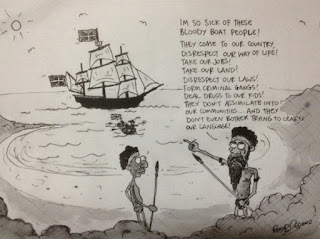 I'M SO SICK OF THESE
BLOODY BOAT PEOPLE!
THEY COME TO OUR COUNTRY,
DISRESPECT OUR WAY OF LIFE!
TAKE OUR JOBS!
TAKE OUR LAND!
DISRESPECT OUR LAWS!
FORM CRIMINAL GANGS!
DEAL DRUGS TO OUR KIDS!
THEY DON'T ASSIMILATE INTO
OUR COMMUNITIES... AND THEY
DON'T EVEN BOTHER TRYING TO LEARN
OUR LANGUAGE!